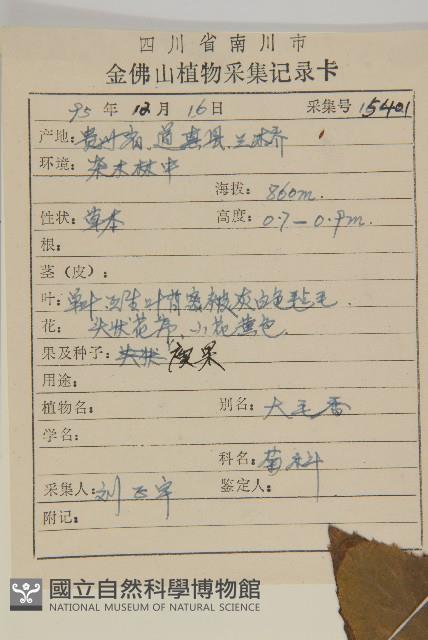 四川省南川市
金佛山植物采集记录卡
95年12月16日 采集号15401
产地:贵州省.道真县.兰木乔
环境:杂木林中
海拨:860m.
性状:草本 高度:0.7—0.9m.
根:
茎(皮):
叶:单叶互生.叶背密被灰白色毡毛.
花:头状花序.小花黄色.
果及种子:瘦果
用途:
植物名: 别名:大毛香
学名:
科名:菊科
采集人:刘正宇 鉴定人:
附记:
國立自然科學博物館
NATIONAL MUSEUM OF NATURAL SCIENCE